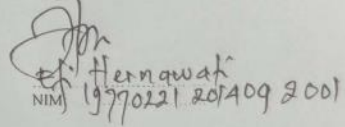 Eti Hernawati
NIM 19770221 201409 2001